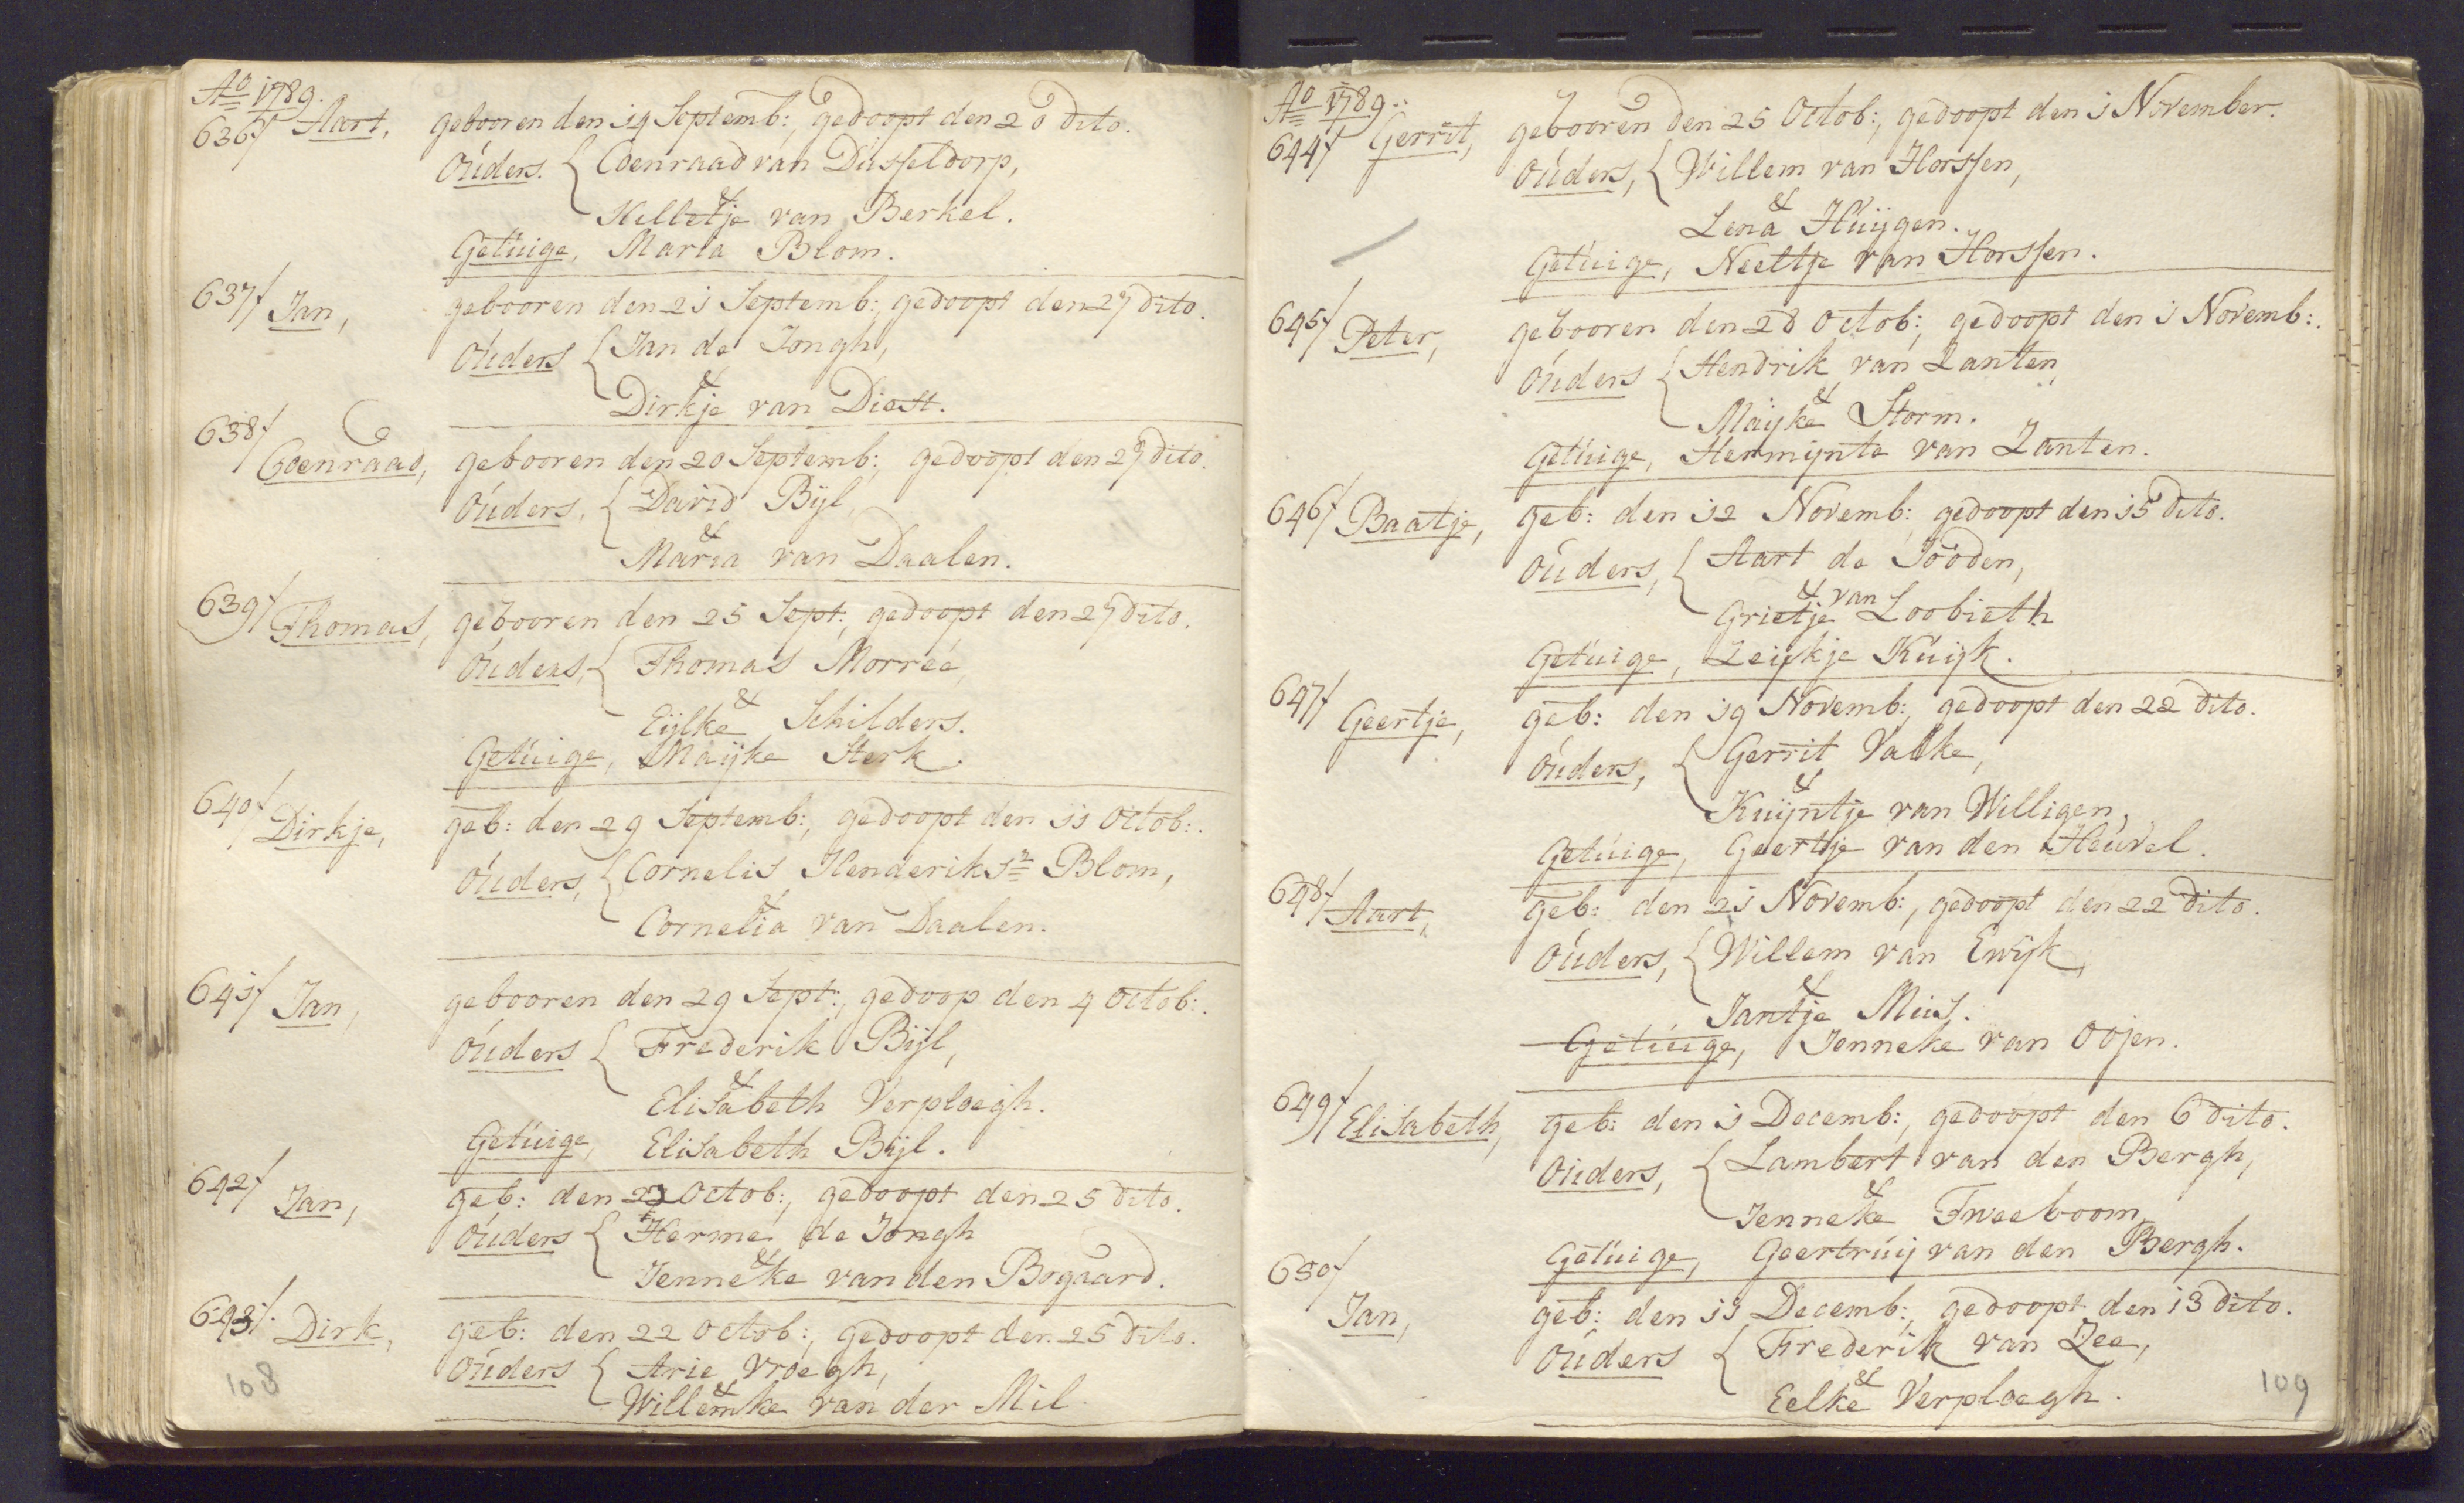 Ao 1789.
636/ Aart, gebooren den 19 Septemb:, gedoopt den 20 dito.
Ouders. { Coenraad van Dusseldorp,
&
Hilletje van Berkel.
Getuige, Maria Blom.
637/ Jan, gebooren den 21 Septemb:, gedoopt den 27 dito.
Ouders { Jan de Jongh,
&
Dirkje van Diest.
638/ Coenraad, gebooren den 20 Septemb:, gedoopt den 27 dito.
Ouders, { David Bijl,
&
Maria van Daalen.
639/ Thomas, gebooren den 25 Sept:, gedoopt den 27 dito.
Ouders, { Thomas Morreé,
&
Eijlke Schilders.
Getuige, Maijke Sterk.
640/ Dirkje, geb: den 29 Septemb:, gedoopt den 11 Octob:.
Ouders, { Cornelis Henderiksn Blom,
&
Cornelia van Daalen.
641/ Jan, gebooren den 29 Sept:, gedoop den 4 Octob:.
Ouders { Frederik Bijl,
&
Elisabeth Verploegh.
Getuige, Elisabeth Bijl.
642/ Jan, geb: den Octob:, gedoopt den 25 dito.
Ouders { Herme de Jongh
&
Jenneke van den Bogaard.
643/. Dirk, geb: den 22 Octob:, gedoopt den 25 dito.
Ouders { Arie Vroegh,
&
Willemke van der Mil.
108
Ao 1789.
644/ Gerrit, gebooren den 25 Octob:, gedoopt den 1 November.
Ouders, { Willem van Horssen,
&
Lena Huijgen.
Getuige, Neeltje van Horssen.
645/ Peter, gebooren den 28 Octob:, gedoopt den 1 Novemb:.
Ouders { Hendrik van Zanten,
&
Maijke Storm.
Getuige, Hermijnte van Zanten.
646/ Baatje, geb: den 12 Novemb: gedoopt den 15 dito.
Ouders, { Aart de Jooden,
& van
Grietje Loobieth
Getuige, Zeijkje Kuijk.
647/ Geertje, geb: den 19 Novemb:, gedoopt den 22 dito.
Ouders, { Gerrit Valke,
&
Kuijntje van Willigen,
Getuige, Geertje van den Heuvel.
648/ Aart, geb: den 21 Novemb:, gedoopt den 22 dito.
Ouders, { Willem van Ewijk,
&
Jantje Mus.
Getuige, Jenneke van Oojen.
649/ Elisabeth, geb: den 1 Decemb:, gedoopt den 6 dito.
Ouders, { Lambert van den Bergh,
&
Jenneke Tweeboom,
Getuige, Geertruij van den Bergh.
650/ Jan, geb: den 11 Decemb:, gedoopt den 13 dito.
Ouders { Frederik van Zee,
&
Eelke Verploegh.
109